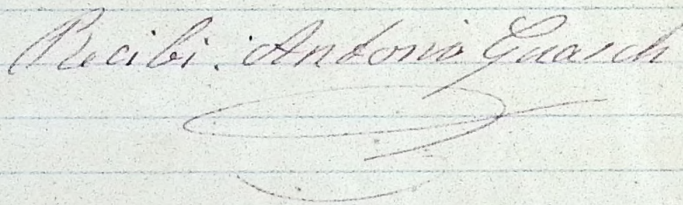 Recibi. Antonio Guasch